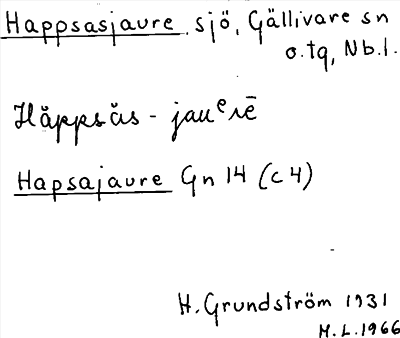 Happsasjaure, sjö, Gällivare sn
o. tg, Nb.l.
Hăppsăs - jauᵉrē
Hapsajaure Gn 14 (c4)
H. Grundström 1931
H.L. 1966